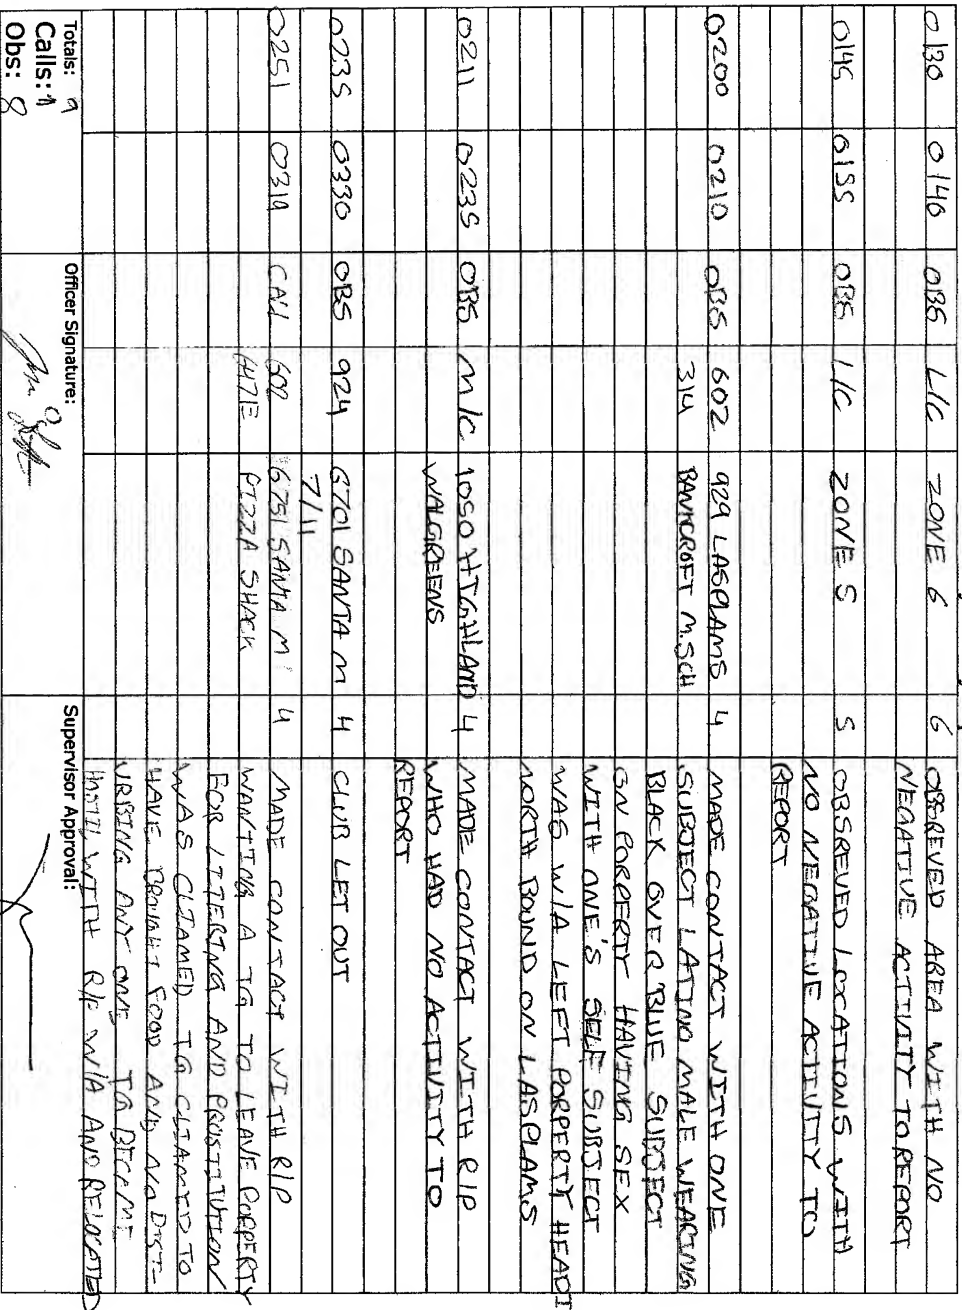 0130 0140 OBS L/C ZONE 6 6 OBSREVED AREA WITH NO
NEGATIVE ACTIVITY TO REPORT
0145 0155 OBS L/C ZONE 5 5 OBSREVED LOCATIONS WITH
NO NEGATIVE ACTIVITY TO
REPORT
0200 0210 OBS 602 929 LASPLAMS 4 MADE CONTACT WITH ONE
314 BANCROFT M.SCH SUBJECT LATINO MALE WEARING
BLACK OVER BLUE SUBJECT
ON PORPERTY HAVING SEX
WITH ONE'S SELF SUBJECT
WAS W/A LEFT PORPERTY HEADI
NORTH BOUND ON LASPLAMS
0211 0235 OBS M/C 1050 HIGHLAND 4 MADE CONTACT WITH R/P
WALGREENS WHO HAD NO ACTIVITY TO
REPORT
0235 0330 OBS 924 6701 SANTA M 4 CLUB LET OUT
7/11
0251 0319 CALL 602 6751 SANTA M 4 MADE CONTACT WITH R/P
PIZZA SHACK WANTING A TG TO LEAVE PORPERTY
FOR LITTERING AND PROSTITUTION
WAS CLIAMED TG CLIAMED TO
HAVE BROUGHT FOOD AND NO DIST-
URBING ANY ONE, TG BECAME
WITH R/P W/A AND RELOCATED
Totals: 9
Calls: 1
Obs: 8
Officer Signature:
Supervisor Approval: